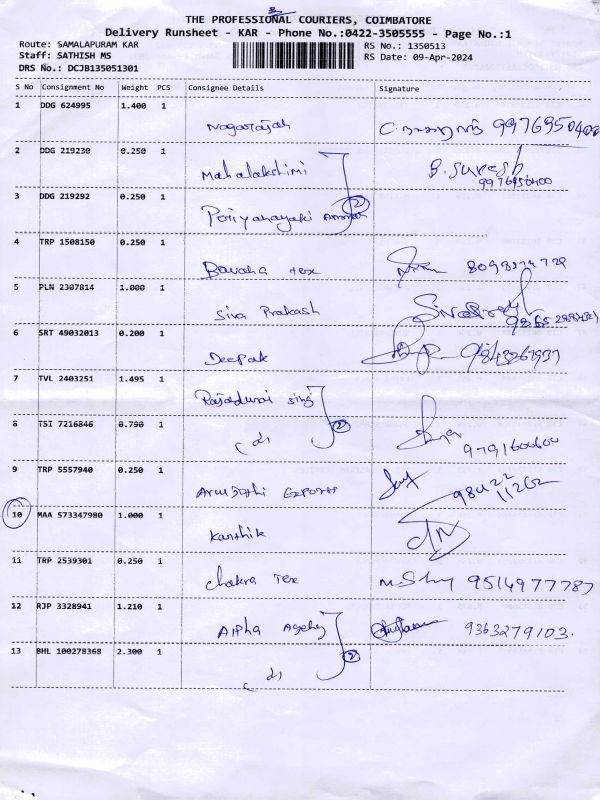 THE PROFESSIONAL COURIERS, COIMBATORE
Delivery Runsheet - KAR - Phone No.:0422-3505555 - Page No.:1
Route: SAMALAPURAM KAR RS No.: 1350513
Staff: SATHISH MS RS Date: 09-Apr-2024
DRS No.: DCJB135051301
S No Consignment No Weight PCS Consignee Details Signature
1 DDG 624995 1.400 1
Nagarajah 9976950408
2 DDG 219230 0.250 1
Mahalakshimi B. Suresh
9976950400
3 DDG 219292 0.250 1
Periyanayaki Amman 2
4 TRP 1508150 0.250 1
Bavaha tex
5 PLN 2307814 1.000 1
Siva Prakash
6 SRT 49032013 0.200 1
Deepak
7 TVL 2403251 1.495 1
Rajadurai Sing
8 TSI 7216846 0.790 1 2
(d)
9791600600
9 TRP 5557940 0.250 1
Arul Jothi Exports 98422
11262
10 MAA 573347980 1.000 1
Karthik
11 TRP 2539301 0.250 1
Chakra Tex 9514977787
12 RJP 3328941 1.210 1
Alpha Agency 9363279103.
13 BHL 100278368 2.300 1 2
(d)